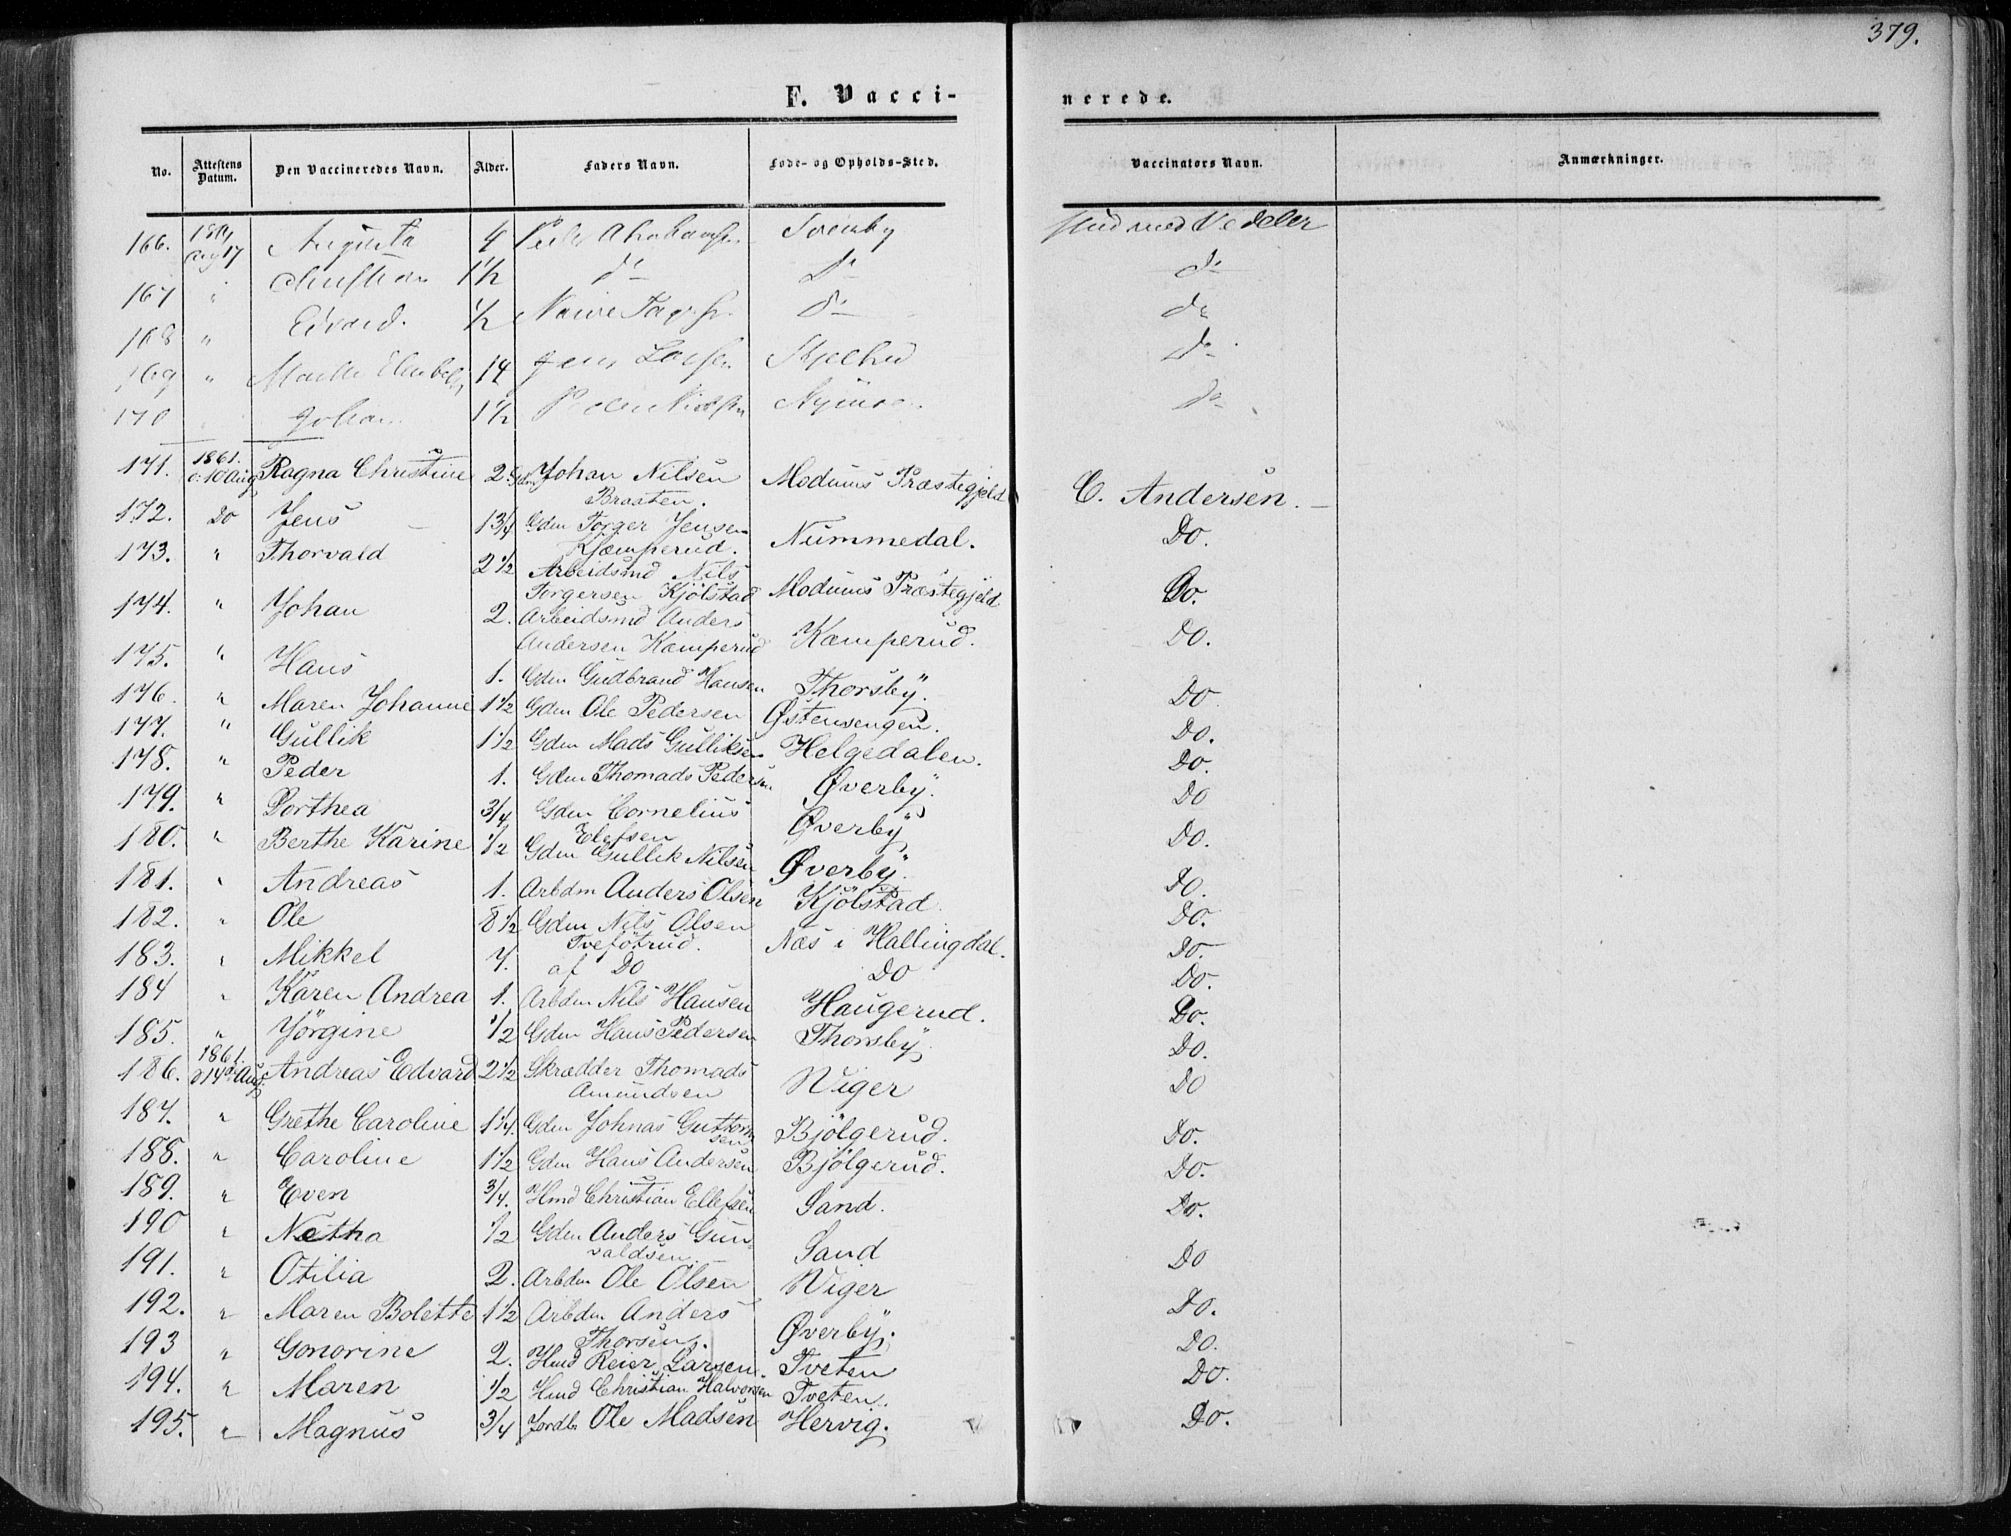 379.
F. Vacci- nerede.
No. Attestens Datum. Den Vaccineredes Navn. Alder. Faders Navn. Føde- og Opholds-Sted. Vaccinators Navn. Anmærkninger.
166. Aug 17 Augusta 4 Peder Abrahamsen stud med Vedeler
167 " Christian 1 1/2 do do do
168 " Edvard. 1/2 do do
169 " 14 Jens do
170 Johan 1 1/2 do
171. 1861. d: 10 Aug Ragna Christine 2. Gdm Johan Nilsen Modums Præstegjeld C. Andersen.
Braaten.
172. Do Jens 1 3/4 Gdm Torger Jensen Nummedal. Do.
Kjæmperud.
173. " Thorvald 2 1/2 Arbeidsmd Nils Modums Præstegjeld Do.
Torgersen Kjölstad
174. " Johan 2. Arbeidsmd Anders Kamperud. Do.
Andersen Kamperud
175. " Hans 1. Gdm Gudbrand Hansen Thorsby. Do
176. " Maren Johanne 1 1/2 Gdm Ole Pedersen Østensengen. Do.
177. " Gullik 1 1/2 Gdm Mads Gulliksen Helgedalen. Do.
178. " Peder 1. Gdm Thomads Pedersen Øverby. Do
179. " Dorthea 3/4 Gdm Cornelius Øverby Do.
Elefsen
180. " Berthe Karine 1/2 Gdm Gullik Nilsen Øverby. Do.
181. " Andreas 1. Arbdm Anders Olsen Kjölstad Do.
182. " Ole 8 1/2 Gdm Nils Olsen Næs i Hallingdal. Do.
Tveføtrud.
183. " Mikkel 7. af Do Do Do.
184 " Karen Andrea 1. Arbdm Nils Hansen Haugerud. Do.
185. " Jörgine 1/2 Gdm Hans Pedersen Thorsby Do.
186. 1861. d 14d: Aug: Andreas Edvard 2 1/2 Skrædder Thomads Viger Do
Amundsen
187. " Grethe Caroline 1 1/4. Gdm Johnas Guttorm Bjölgerud. Do.
sen
188. " Caroline 1 1/2 Gdm Hans Andersen Bjölgerud. Do.
189. " Even 3/4. Hmd Christian Ellefsen Sand. Do.
190 " Netha 1/2 Gdm Anders Gun- Sand Do
valdsen
191. " Otilia 2. Arbdm Ole Olsen Viger Do.
192. " Maren Bolette 1 1/2 Arbdm Anders Øverby. Do.
Thorsen.
193 " Gonorine 2. Hmd Reier Larsen Tveten Do.
194. " Maren 1/2 Hmd Christian Halvorsen Tveten. Do.
195. " Magnus 3/4 Jordbr Ole Madsen Hervig.